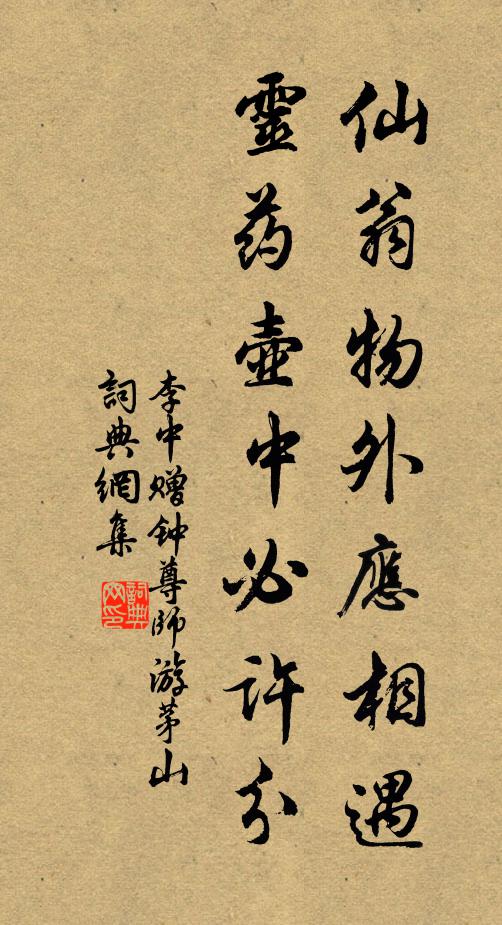 仙翁物外應相遇
靈药壺中必許分
李中赠钟尊師游茅山
詞典網集
詞典网印